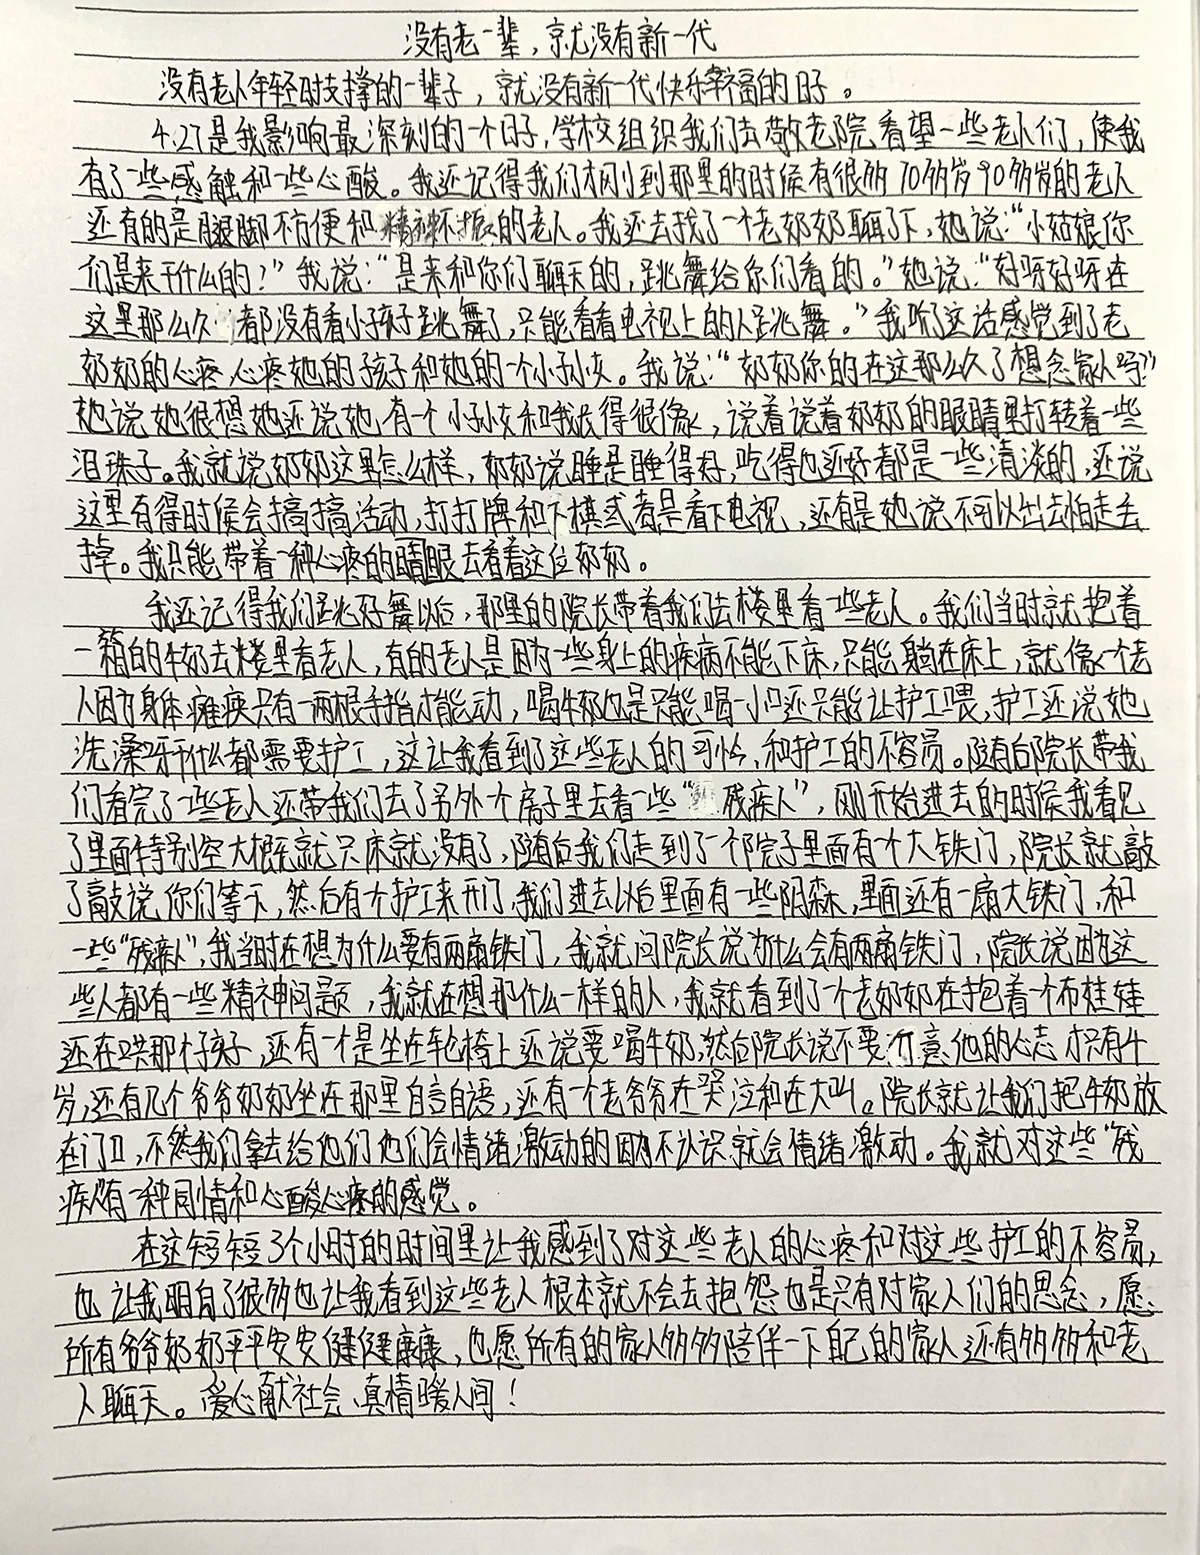 没有老一辈，就没有新一代
没有老人年轻时支撑的一辈子，就没有新一代快乐幸福的日子。
4.27是我影响最深刻的一个日子，学校组织我们去敬老院看望一些老人们，使我
有了一些感触和一些心酸。我还记得我们才刚到那里的时候有很多70多岁90多岁的老人
还有的是腿脚不方便和精神不振的老人。我还去找了一个老奶奶聊了下，她说：“小姑娘你
们是来干什么的！”我说：“是来和你们聊天的，跳舞给你们看的。”她说：“好呀好呀在
这里那么久 都没有看小孩子跳舞了，只能看看电视上的人跳舞。”我听了这话感觉到了老
奶奶的心疼，心疼她的孩子和她的一个小孙女。我说：“奶奶你的在这那么久了想念家人吗？”
她说她很想她还说她有一个小孙女和我长得很像，说着说着奶奶的眼睛里打转着一些
泪珠子。我就说奶奶这里怎么样，奶奶说睡是睡得好，吃得也还好都是一些清淡的，还说
这里有得时候会搞搞活动，打打牌和下棋或者是看下电视，还有是她说不可以出去怕走丢
掉。我只能带着一种心疼的睛眼去看着这位奶奶。
我还记得我们跳好舞以后，那里的院长带着我们去楼里看一些老人。我们当时就抱着
一箱的牛奶去楼里看老人，有的老人是因为一些身上的疾病不能下床，只能躺在床上，就像一个老
人因为身体瘫痪只有一两根手指才能动，喝牛奶也是只能喝一小口还只能让护工喂，护工还说她
洗澡呀什么都需要护工，这让我看到了这些老人的可怜，和护工的不容易。随后院长带我
们看完了一些老人还带我们去了另外一个房子里去看一些“ 残疾人”，刚开始进去的时候我看见
了里面特别空大概就只床就没有了，随后我们走到了一个院子里面有一个大铁门，院长就敲
了敲说你们等下，然后有个护工来开门，我们进去以后里面有一些阴森，里面还有一扇大铁门，和
一些“残疾人”，我当时在想为什么要有两扇铁门，我就问院长说为什么会有两扇铁门，院长说因为这
些人都有一些精神问题，我就在想那什么一样的人，我就看到了一个老奶奶在抱着一个布娃娃
还在哄那个孩子，还有一个是坐在轮椅上还说要喝牛奶，然后院长说不要 意，他的心志才只有4
岁，还有几个爷爷奶奶坐在那里自言自语，还有一个老爷爷在哭泣和在大叫。院长就让我们把牛奶放
在门口，不然我们拿去给他们他们会情绪激动的因为不认识就会情绪激动。我就对这些“残
疾人”有一种同情和心酸心疼的感觉。
在这短短3个小时的时间里让我感到了对这些老人的心疼和对这些护工的不容易，
也让我明白了很多也让我看到这些老人根本就不会去抱怨也是只有对家人们的思念，愿
所有爷爷奶奶平平安安健健康康，也愿所有的家人多多陪伴一下自己的家人还有多多和老
人聊天。爱心献社会、真情暖人间！